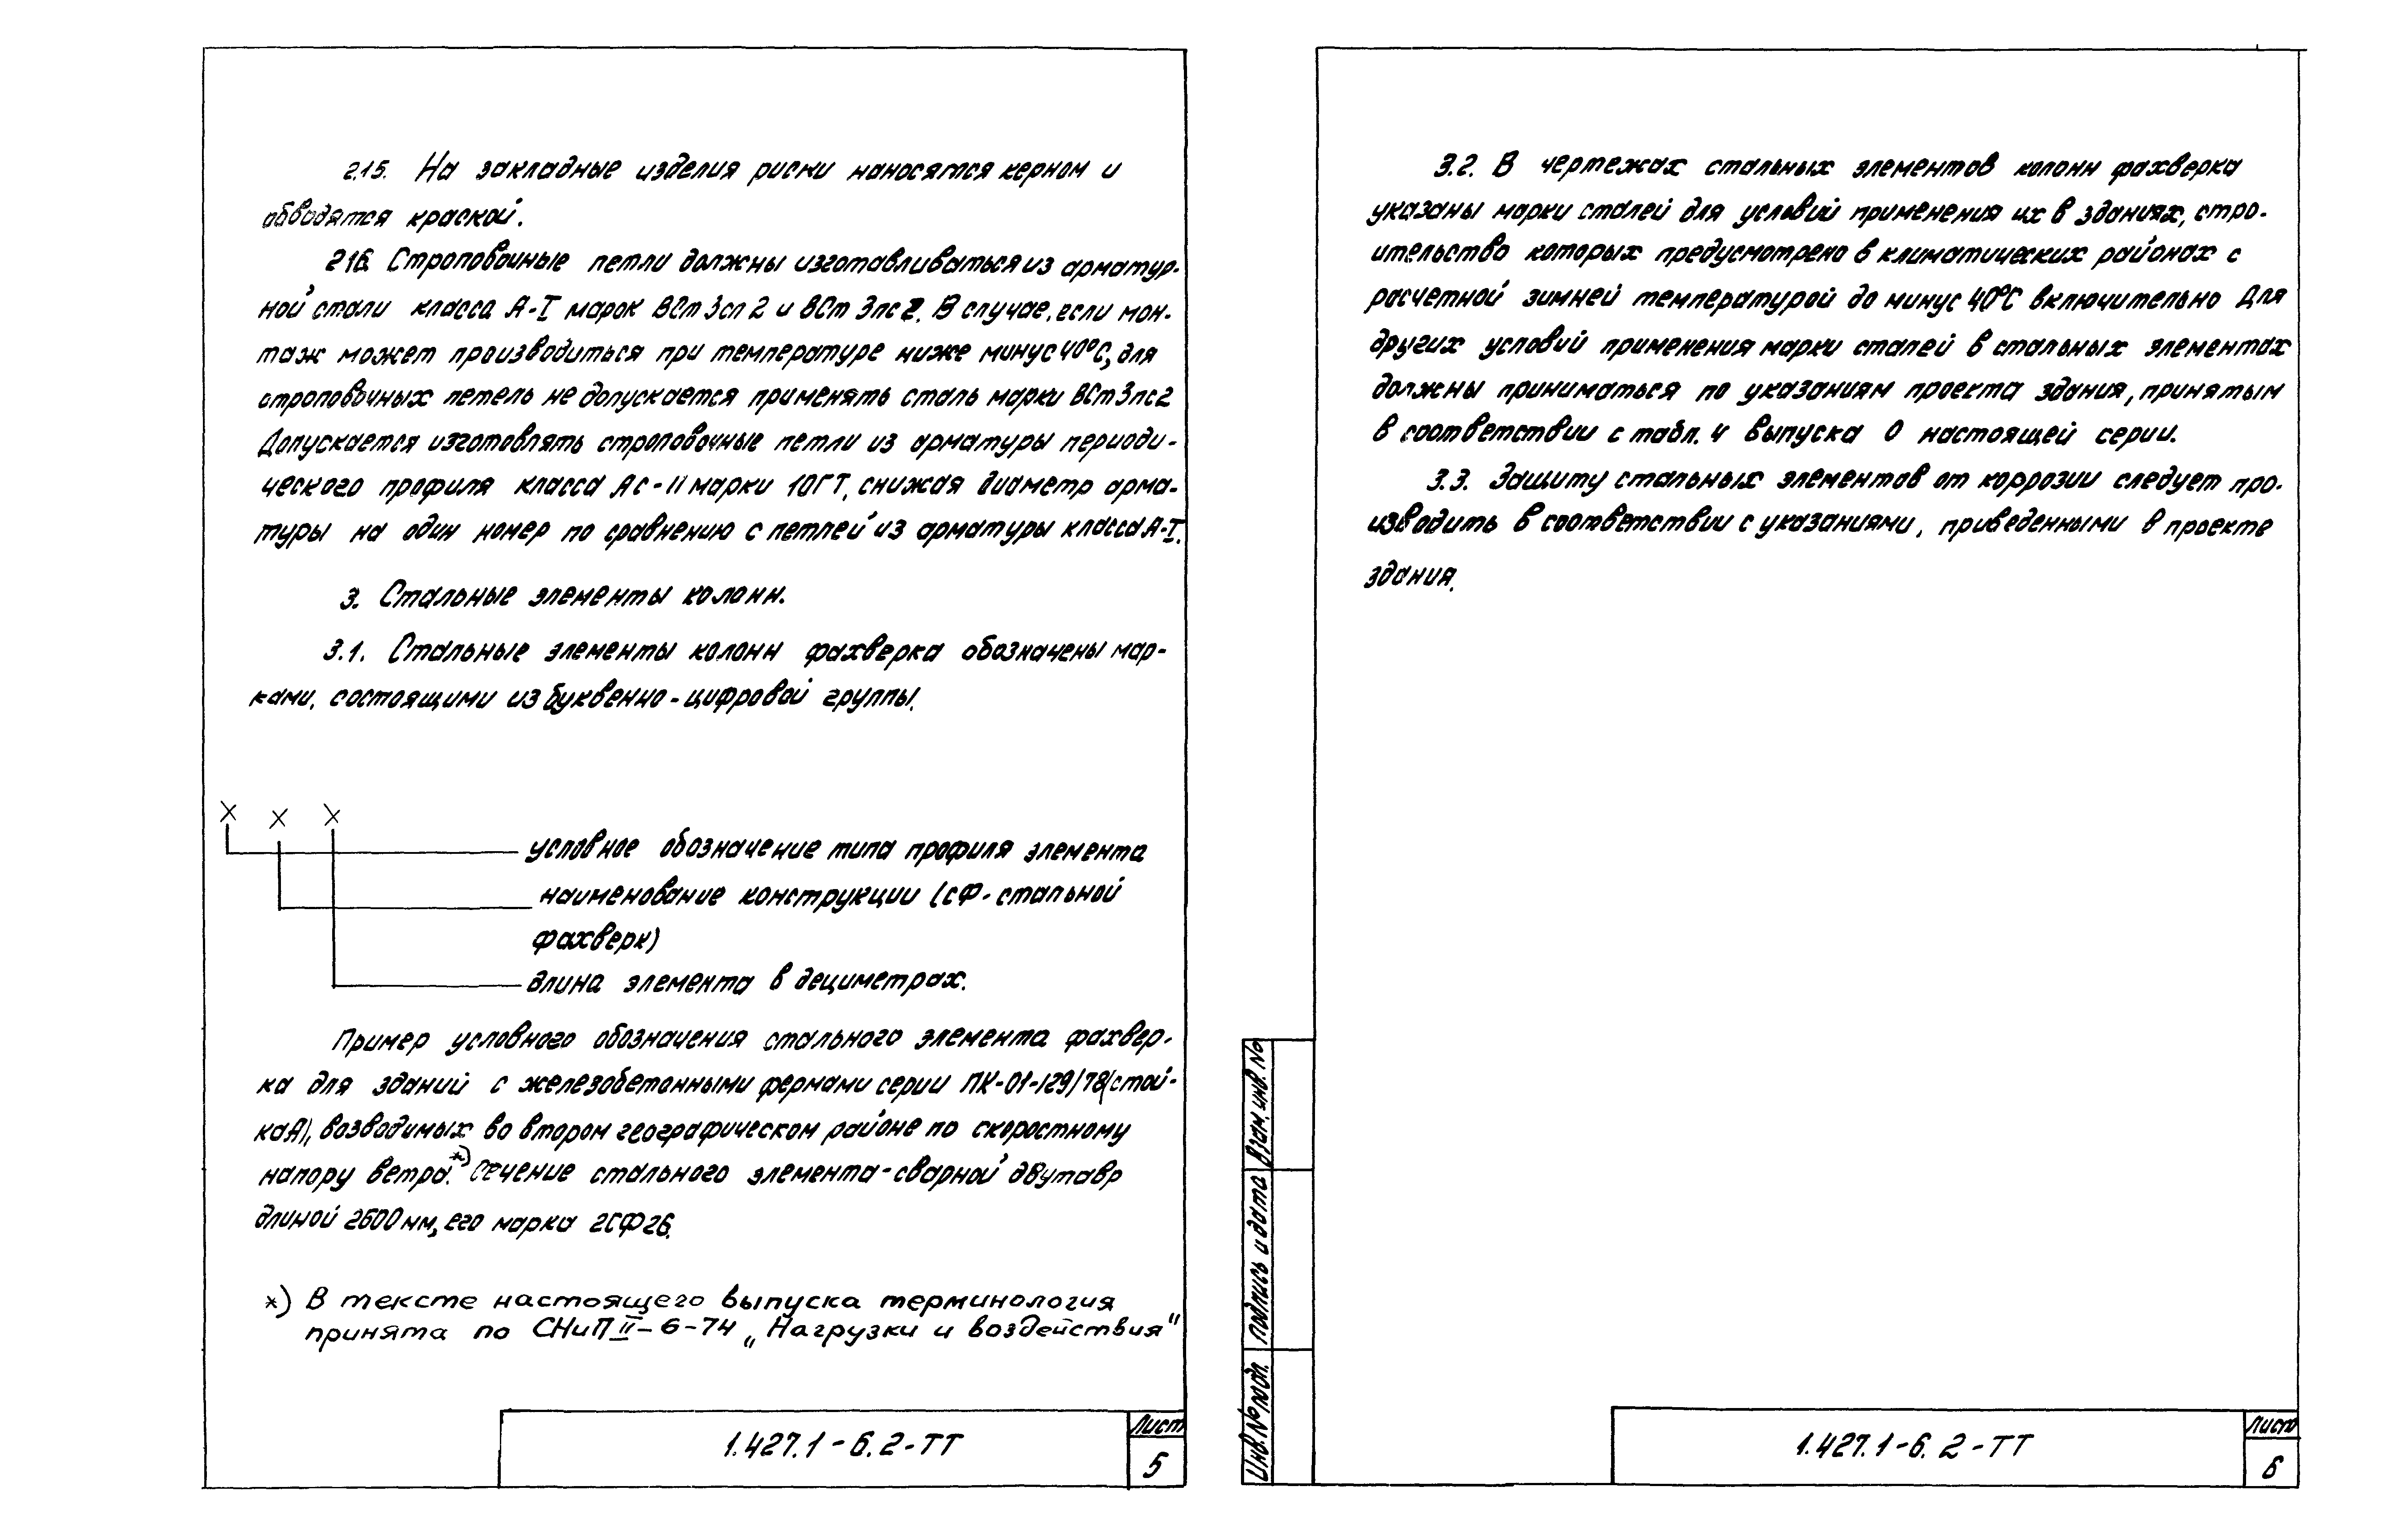 2.15. На закладные изделия риски наносятся керном и
обводятся краской.
2.16. Строповочные петли должны изготавливаться из арматур-
ной стали класса А-I марок ВСт3сп2 и ВСт3пс2. В случае, если мон-
таж может производиться при температуре ниже минус 40°С, для
строповочных петель не допускается применять сталь марки ВСт3пс2
Допускается изготовлять строповочные петли из арматуры периоди-
ческого профиля класса Ас-II марки 10ГТ, снижая диаметр арма-
туры на один номер по сравнению с петлей из арматуры класса А-I.
3. Стальные элементы колонн.
3.1. Стальные элементы колонн фахверка обозначены мар-
ками, состоящими из буквенно-цифровой группы.
X X X
условное обозначение типа профиля элемента
наименование конструкции (СФ-стальной
фахверк)
длина элемента в дециметрах.
Пример условного обозначения стального элемента фахвер-
ка для зданий с железобетонными фермами серии ПК-01-129/78 (стой-
ка А), возводимых во втором географическом районе по скоростному
напору ветра.*) Сечение стального элемента-сварной двутавр
длиной 2600 мм, его марка 2СФ26.
*) В тексте настоящего выпуска терминология
принята по СНиП II-6-74 „Нагрузки и воздействия"
1.427.1-6.2-ТТ
Лист
5
3.2. В чертежах стальных элементов колонн фахверка
указаны марки сталей для условий применения их в зданиях, стро-
ительство которых предусмотрено в климатических районах с
расчетной зимней температурой до минус 40°С включительно Для
других условий применения марки сталей в стальных элементах
должны приниматься по указаниям проекта здания, принятым
в соответствии с табл. 4 выпуска 0 настоящей серии.
3.3. Защиту стальных элементов от коррозии следует про-
изводить в соответствии с указаниями, приведенными в проекте
здания.
Взам. инв. №
Подпись и дата
Инв. № подл.
1.427.1-6.2-ТТ
Лист
6